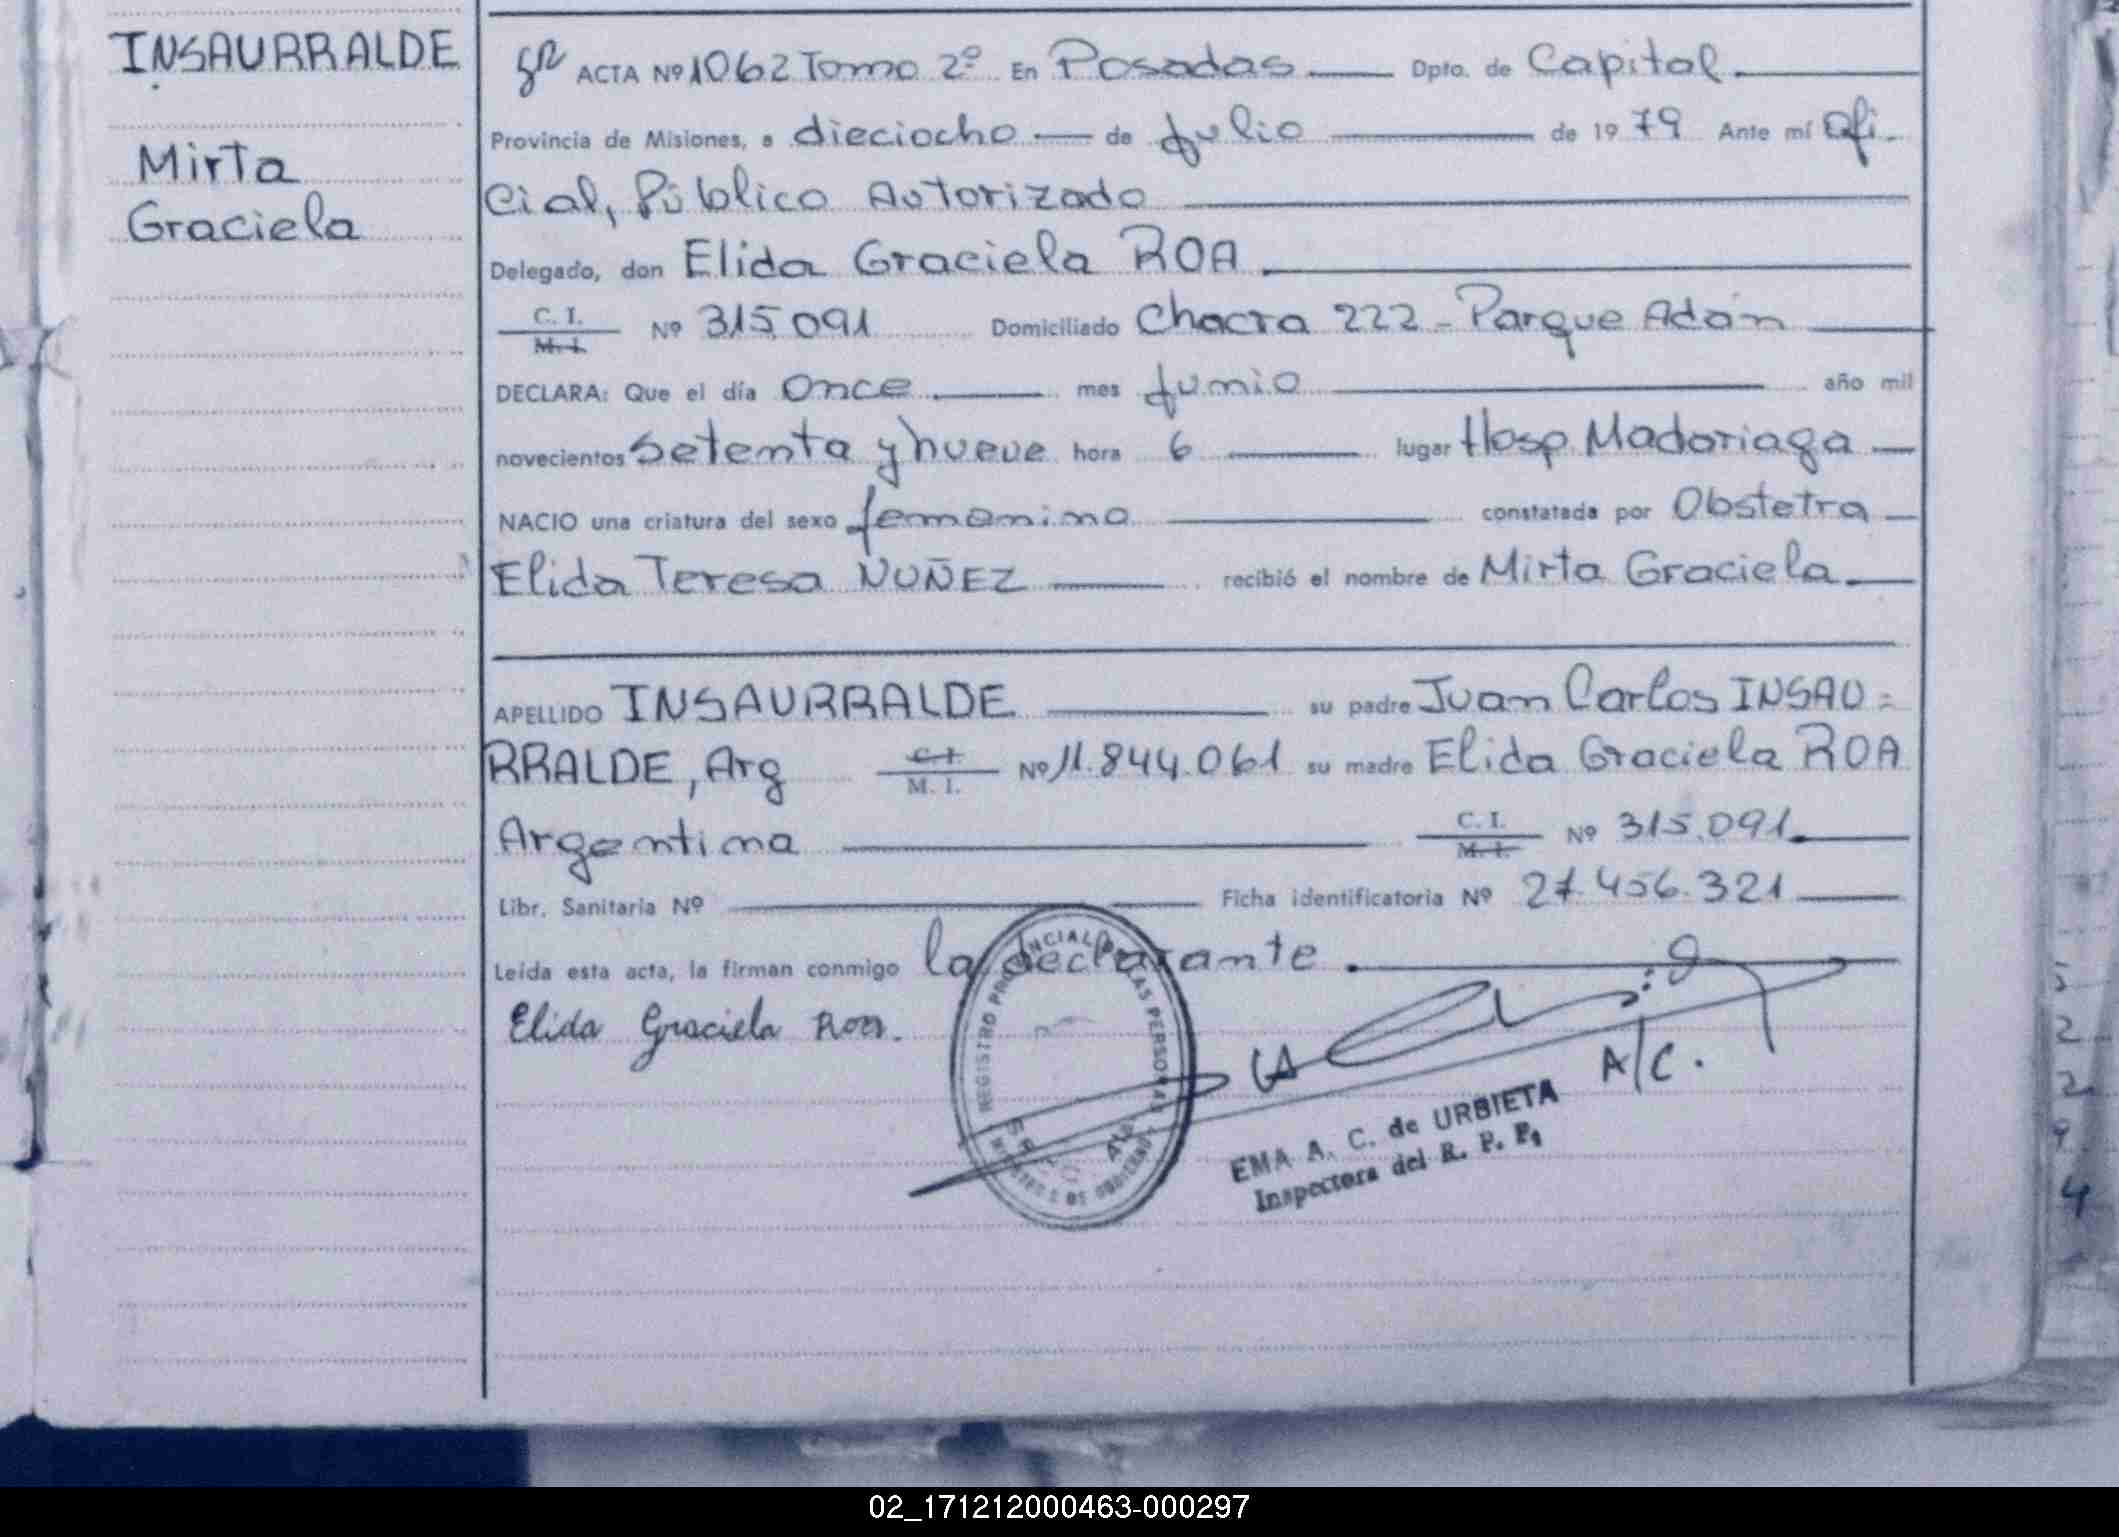 INSAURRALDE
Mirta
Graciela
ACTA Nº 1062 Tomo 2º En Posadas Dpto. de Capital
Provincia de Misiones, a dieciocho de Julio de 1979 Ante mí Ofi-
cial, Público Autorizado
Delegado, don Elida Graciela ROA
C. I.
M. I. Nº 315.091 Domiciliado Chacra 222 - Parque Adam
DECLARA: Que el día Once mes Junio año mil
novecientos setenta y nueve hora 6 lugar Hosp. Madariaga
NACIO una criatura del sexo femenino constatada por Obstetra
Elida Teresa NUÑEZ recibió el nombre de Mirta Graciela
APELLIDO INSAURRALDE su padre Juan Carlos INSAU=
RRALDE, Arg C. I. Nº 11.844.061 su madre Elida Graciela ROA
M. I.
Argentina C. I. Nº 315.091
M. I.
Libr. Sanitaria Nº Ficha identificatoria Nº 27.456.321
Leída esta acta, la firman conmigo la declarante
Elida Graciela Roa.
REGISTRO PROVINCIAL DE LAS PERSONAS
A/C.
EMA A. C. de URBIETA
Inspectora del R. P. P.
5
2
2
9
4
02_171212000463-000297